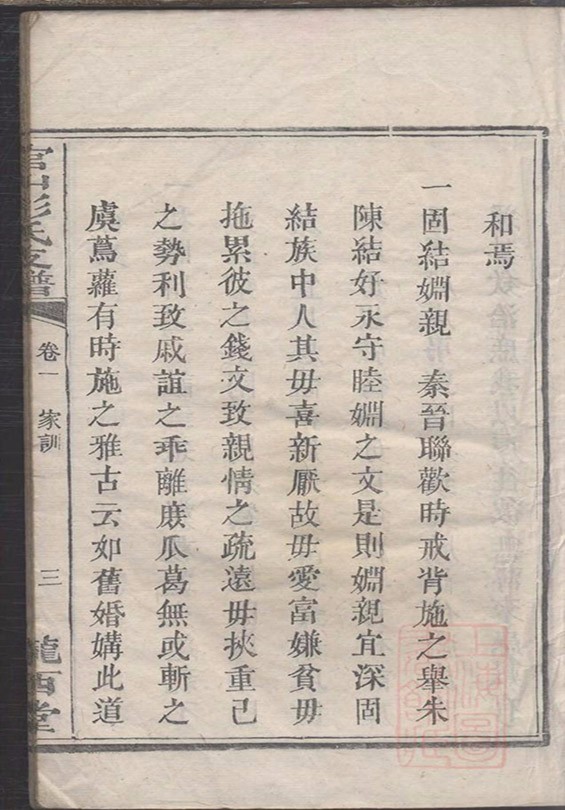 和焉
一固結婣親　秦晉聯歡時戒背施之舉朱
陳結好永守睦婣之文是則婣親宜深固
結族中人其毋喜新厭故毋愛富嫌貧毋
拖累彼之錢文致親情之疏遠毋挾重己
之勢利致戚誼之乖離庶瓜葛無或斬之
虞蔦蘿有時施之雅古云如舊婚媾此道
官山彭氏支譜
卷一　家訓
三
龍西堂